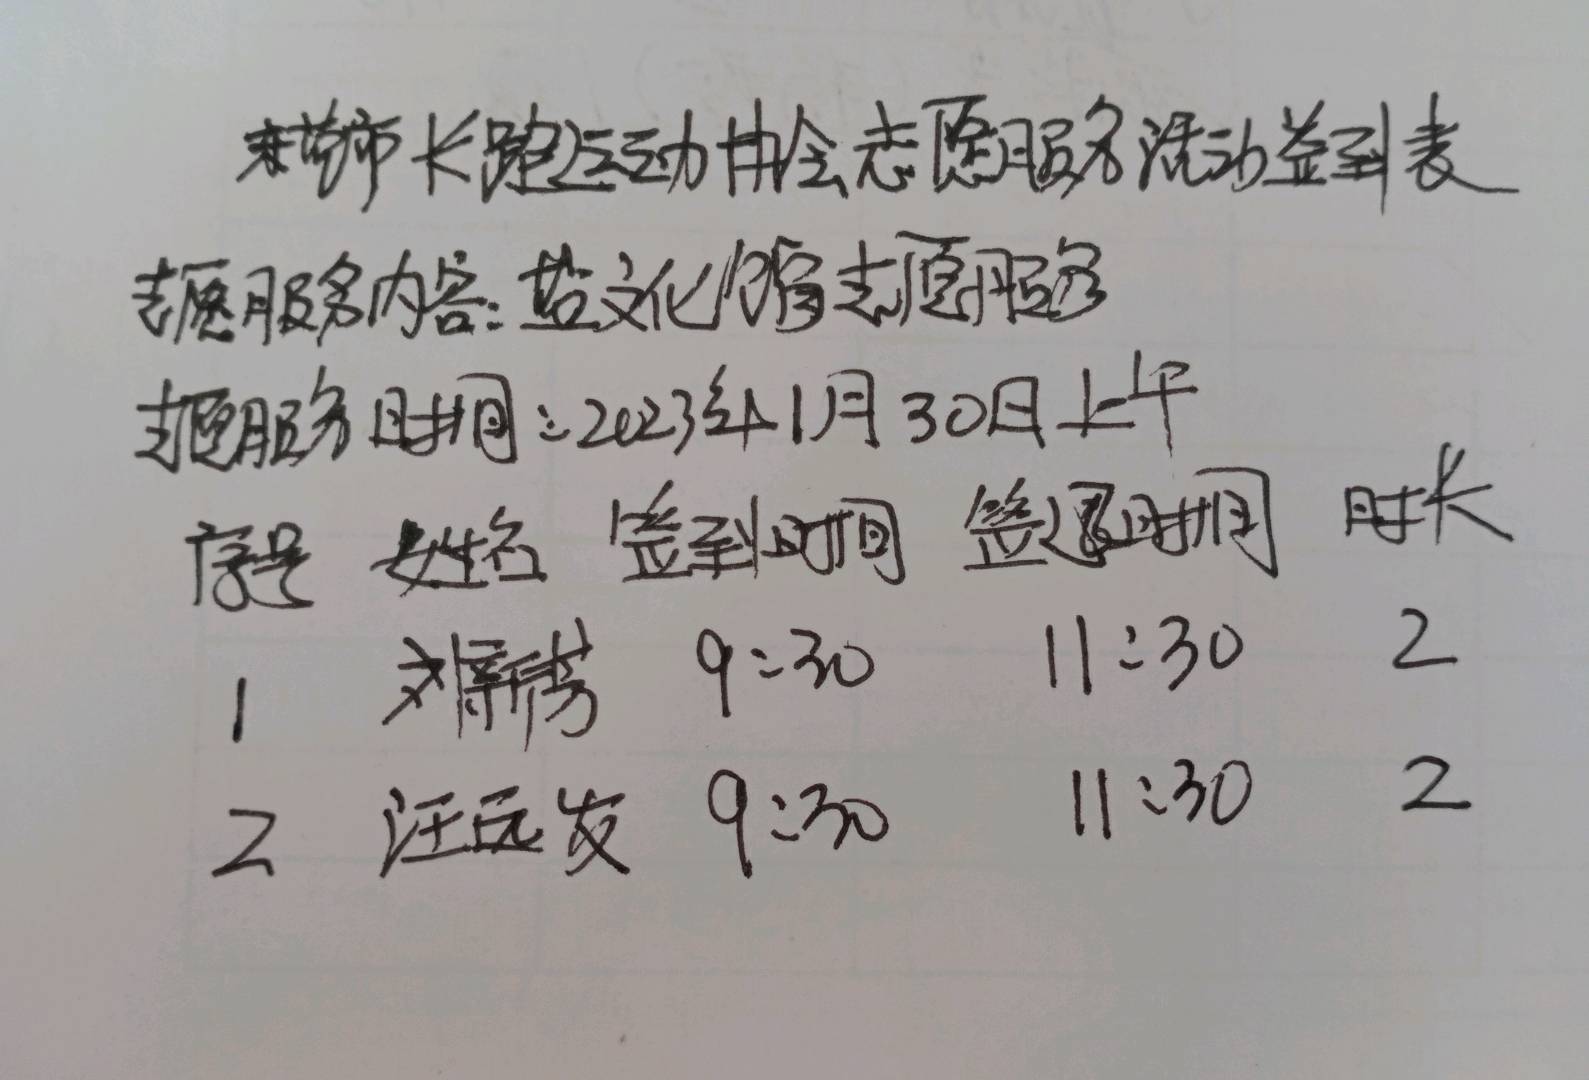 长跑运动协会志愿服务活动签到表
志愿服务内容:盐文化馆志愿服务
志愿服务时间:2023年1月30日上午
序号 姓名 签到时间 签退时间 时长
1 刘新芳 9:30 11:30 2
2 汪远发 9:30 11:30 2